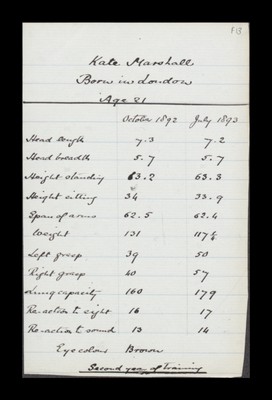 F13
Kate Marshall
Born in London
Age 21
October 1892 July 1893
Head length 7.3 7.2
Head breadth 5.7 5.7
Height standing 63.2 63.3
Height sitting 34 33.9
Span of arms 62.5 62.4
Weight 131 117½
Left grasp 39 50
Right grasp 40 57
Lung capacity 160 179
Re-action to sight 16 17
Re-action to sound 13 14
Eye colour Brown
Second year of Training